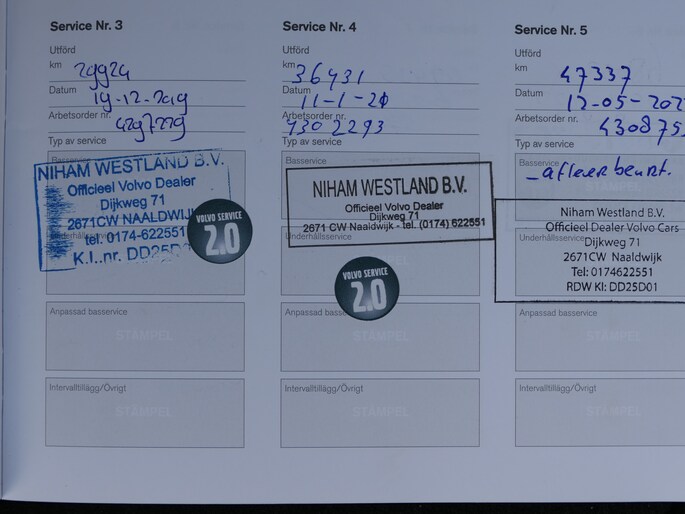 Service Nr. 3
Utförd
km 29929
Datum 19-12-2019
Arbetsorder nr. 4297229
Typ av service
Basservice
NIHAM WESTLAND B.V.
Officieel Volvo Dealer
Dijkweg 71
2671CW NAALDWIJK
tel. 0174-622551
K.I..nr. DD25D
VOLVO SERVICE
2.0
Underhållsservice
STÄMPEL
Anpassad basservice
STÄMPEL
Intervalltillägg/Övrigt
STÄMPEL
Service Nr. 4
Utförd
km 36931
Datum 11-1-21
Arbetsorder nr. 4302293
Typ av service
Basservice
NIHAM WESTLAND B.V.
Officieel Volvo Dealer
Dijkweg 71
2671 CW Naaldwijk - tel. (0174) 622551
Underhållsservice
VOLVO SERVICE
2.0
Anpassad basservice
STÄMPEL
Intervalltillägg/Övrigt
STÄMPEL
Service Nr. 5
Utförd
km 47337
Datum 12-05-202
Arbetsorder nr. 430875
Typ av service
Basservice
- afleverbeurt.
Niham Westland B.V.
Underhållsservice
Officieel Dealer Volvo Cars
Dijkweg 71
2671CW Naaldwijk
Tel: 0174622551
RDW KI: DD25D01
Anpassad basservice
STÄMPEL
Intervalltillägg/Övrigt
STÄMPEL